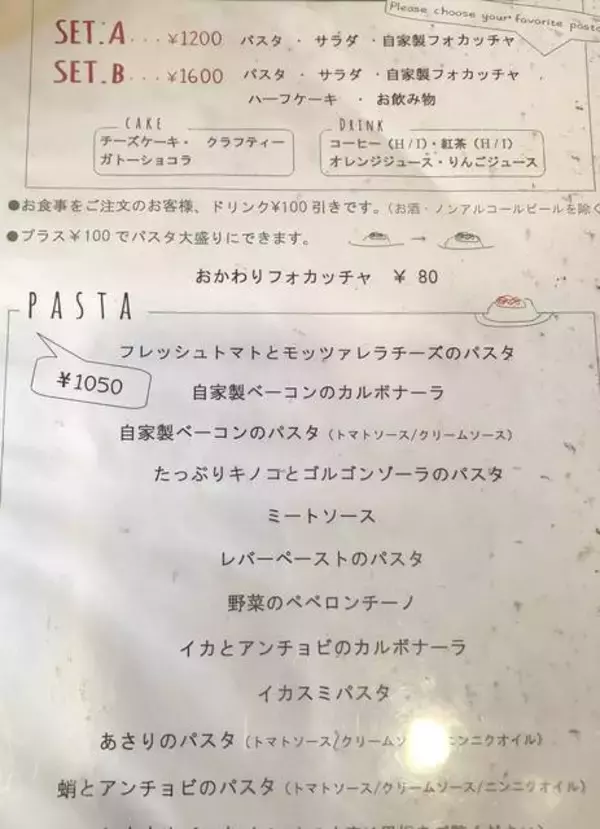 Please choose your favorite pasta
SET.A...¥1200 パスタ ・ サラダ ・自家製フォカッチャ
SET.B...¥1600 パスタ ・ サラダ ・自家製フォカッチャ
ハーフケーキ ・ お飲み物
CAKE
チーズケーキ・ クラフティー
ガトーショコラ
DRINK
コーヒー(H/I)・紅茶(H/I)
オレンジジュース・りんごジュース
●お食事をご注文のお客様、ドリンク¥100引きです。(お酒・ノンアルコールビールを除く
●プラス¥100でパスタ大盛りにできます。 →
おかわりフォカッチャ ¥ 80
PASTA
¥1050
フレッシュトマトとモッツァレラチーズのパスタ
自家製ベーコンのカルボナーラ
自家製ベーコンのパスタ(トマトソース/クリームソース)
たっぷりキノコとゴルゴンゾーラのパスタ
ミートソース
レバーペーストのパスタ
野菜のペペロンチーノ
イカとアンチョビのカルボナーラ
イカスミパスタ
あさりのパスタ(トマトソース/クリームソ ニンニクオイル)
蛸とアンチョビのパスタ(トマトソース/クリームソース/ニンニクオイル)